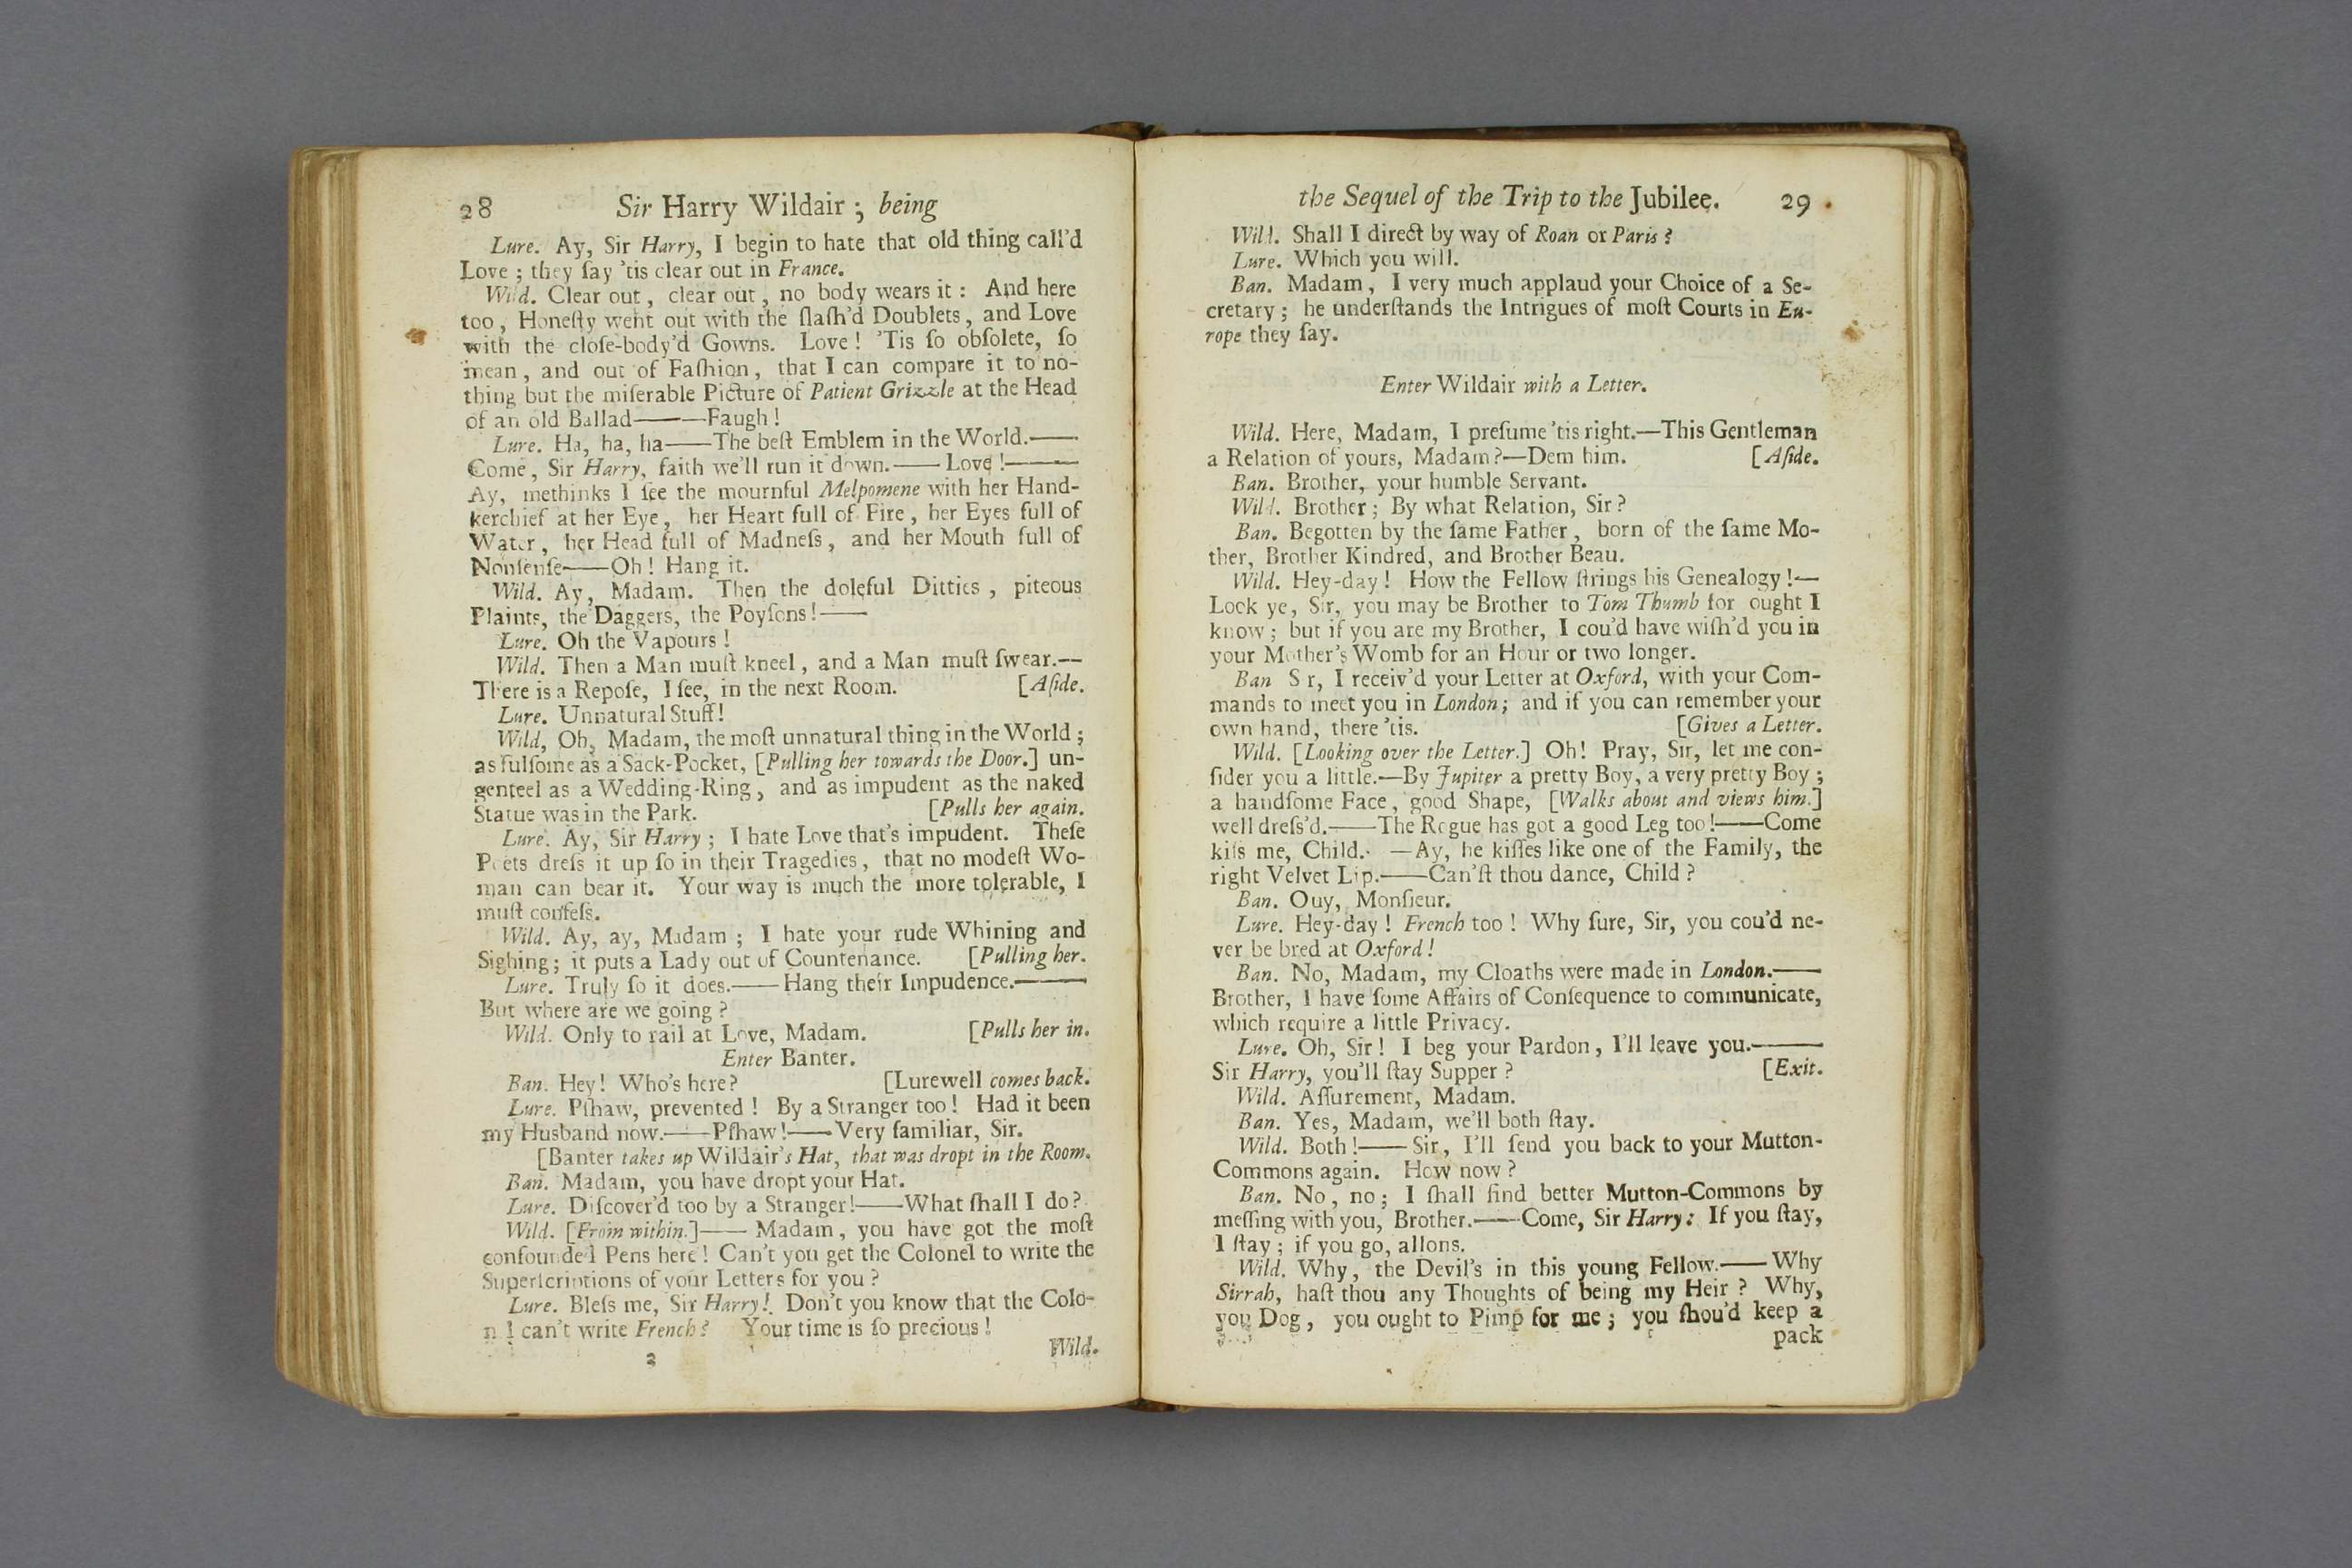 28 Sir Harry Wildair; being
Lure. Ay, Sir Harry, I begin to hate that old thing call'd
Love; they ſay 'tis clear out in France.
Wild. Clear out, clear out, no body wears it: And here
too, Honeſty went out with the ſlaſh'd Doublets, and Love
with the cloſe-body'd Gowns. Love! 'Tis ſo obſolete, ſo
mean, and out of Faſhion, that I can compare it to no-
thing but the miſerable Picture of Patient Grizzle at the Head
of an old Ballad——Faugh!
Lure. Ha, ha, ha——The beſt Emblem in the World.——
Come, Sir Harry, faith we'll run it down.——Love!——
Ay, methinks I ſee the mournful Melpomene with her Hand-
kerchief at her Eye, her Heart full of Fire, her Eyes full of
Water, her Head full of Madneſs, and her Mouth full of
Nonſenſe——Oh! Hang it.
Wild. Ay, Madam. Then the doleful Ditties, piteous
Plaints, the Daggers, the Poyſons!——
Lure. Oh the Vapours!
Wild. Then a Man muſt kneel, and a Man muſt ſwear.—
There is a Repoſe, I ſee, in the next Room. [Aſide.
Lure. Unnatural Stuff!
Wild, Oh, Madam, the moſt unnatural thing in the World;
as fulſome as a Sack-Pocket, [Pulling her towards the Door.] un-
genteel as a Wedding-Ring, and as impudent as the naked
Statue was in the Park. [Pulls her again.
Lure. Ay, Sir Harry; I hate Love that's impudent. Theſe
Poets dreſs it up ſo in their Tragedies, that no modeſt Wo-
man can bear it. Your way is much the more tolerable, I
muſt confeſs.
Wild. Ay, ay, Madam; I hate your rude Whining and
Sighing; it puts a Lady out of Countenance. [Pulling her.
Lure. Truly ſo it does.——Hang their Impudence.——
But where are we going?
Wild. Only to rail at Love, Madam. [Pulls her in.
Enter Banter.
Ban. Hey! Who's here? [Lurewell comes back.
Lure. Pſhaw, prevented! By a Stranger too! Had it been
my Husband now.——Pſhaw!——Very familiar, Sir.
[Banter takes up Wildair's Hat, that was dropt in the Room.
Ban. Madam, you have dropt your Hat.
Lure. Diſcover'd too by a Stranger!——What ſhall I do?
Wild. [From within.]—— Madam, you have got the moſt
confounded Pens here! Can't you get the Colonel to write the
Superſcriptions of your Letters for you?
Lure. Bleſs me, Sir Harry! Don't you know that the Colo-
nel can't write French? Your time is ſo precious!
2 Wild.
the Sequel of the Trip to the Jubilee. 29
Wild. Shall I direct by way of Roan or Paris?
Lure. Which you will.
Ban. Madam, I very much applaud your Choice of a Se-
cretary; he underſtands the Intrigues of moſt Courts in Eu-
rope they ſay.
Enter Wildair with a Letter.
Wild. Here, Madam, I preſume 'tis right.—This Gentleman
a Relation of yours, Madam?—Dem him. [Aſide.
Ban. Brother, your humble Servant.
Wild. Brother; By what Relation, Sir?
Ban. Begotten by the ſame Father, born of the ſame Mo-
ther, Brother Kindred, and Brother Beau.
Wild. Hey-day! How the Fellow ſtrings his Genealogy!—
Look ye, Sir, you may be Brother to Tom Thumb for ought I
know; but if you are my Brother, I cou'd have wiſh'd you in
your Mother's Womb for an Hour or two longer.
Ban Sir, I receiv'd your Letter at Oxford, with your Com-
mands to meet you in London; and if you can remember your
own hand, there 'tis. [Gives a Letter.
Wild. [Looking over the Letter.] Oh! Pray, Sir, let me con-
ſider you a little.—By Jupiter a pretty Boy, a very pretty Boy;
a handſome Face, good Shape, [Walks about and views him.]
well dreſs'd.——The Rogue has got a good Leg too!——Come
kiſs me, Child.—Ay, he kiſſes like one of the Family, the
right Velvet Lip.——Can'ſt thou dance, Child?
Ban. Ouy, Monſieur.
Lure. Hey-day! French too! Why ſure, Sir, you cou'd ne-
ver be bred at Oxford!
Ban. No, Madam, my Cloaths were made in London.——
Brother, I have ſome Affairs of Conſequence to communicate,
which require a little Privacy.
Lure. Oh, Sir! I beg your Pardon, I'll leave you.——
Sir Harry, you'll ſtay Supper? [Exit.
Wild. Aſſurement, Madam.
Ban. Yes, Madam, we'll both ſtay.
Wild. Both!——Sir, I'll ſend you back to your Mutton-
Commons again. How now?
Ban. No, no; I ſhall find better Mutton-Commons by
meſſing with you, Brother.——Come, Sir Harry: If you ſtay,
I ſtay; if you go, allons.
Wild. Why, the Devil's in this young Fellow.——Why
Sirrah, haſt thou any Thoughts of being my Heir? Why,
you Dog, you ought to Pimp for me; you ſhou'd keep a
pack